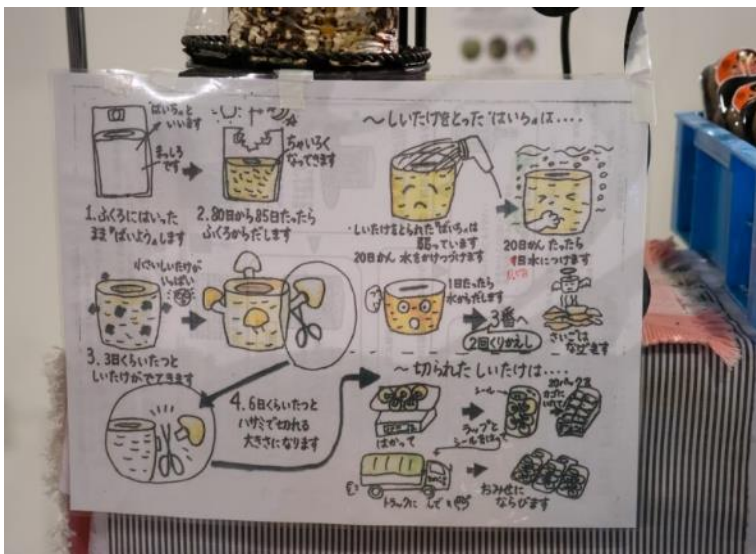 "ばいち"と
いいます
まっしろ
です
1.ふくろにはいった
まま"ばいよう"します
ちゃいろく
なってきます
2.80日から85日たったら
ふくろからだします
小さいしいたけが
いっぱい
3.3日くらいたつと
しいたけがでてきます
4.6日くらいたつと
ハサミで切れる
大きさになります
〜しいたけをとった"ばいち"は‥‥
・しいたけをとられた"ばいち"は
弱っています
20日かん 水をかけつづけます
20日かん たったら
1日水につけます
1日たったら
水からだします
3番へ
2回くりかえし
さいごは
なげます
〜切られた しいたけは‥‥
はかって
シール
ラップと
シールをはって
カゴに
いれて
トラックに
おみせに
ならびます